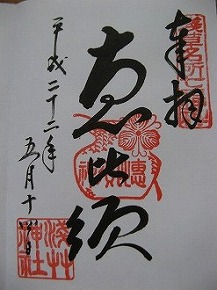 奉拝
恵比須
平成二十二年
五月十
浅草
神社